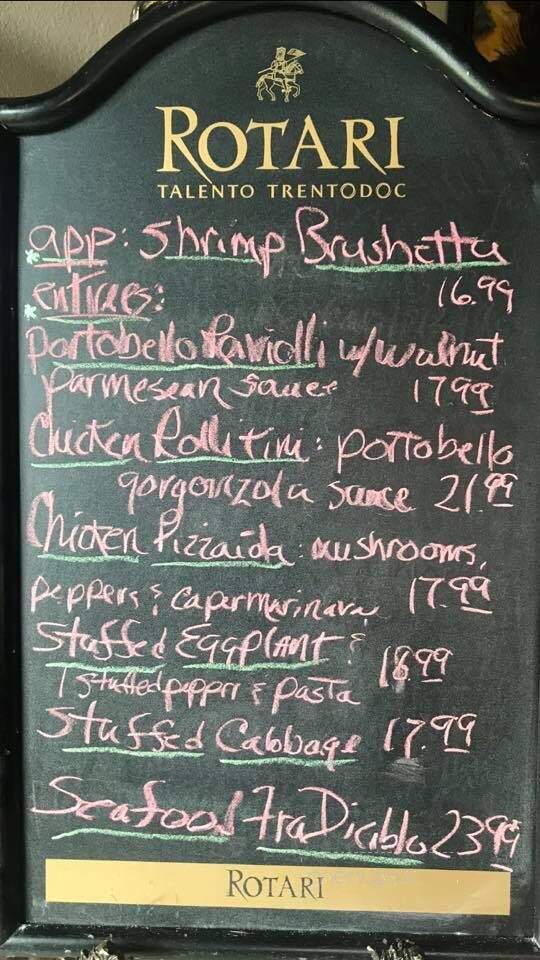 ROTARI
TALENTO TRENTODOC
*app: Shrimp Brushetta
16.99
*entraes:
Portobello Raviolli w/walnut
parmesean sauce 17.99
Chicken Rollitini: portobello
gorgonzola sauce 21.99
Chicken Pizzaida: mushrooms,
peppers & caper marinara 17.99
Stuffed Eggplant &
1 stuffed pepper & pasta 18.99
Stuffed Cabbage 17.99
Seafood Fra Diablo 23.99
ROTARI